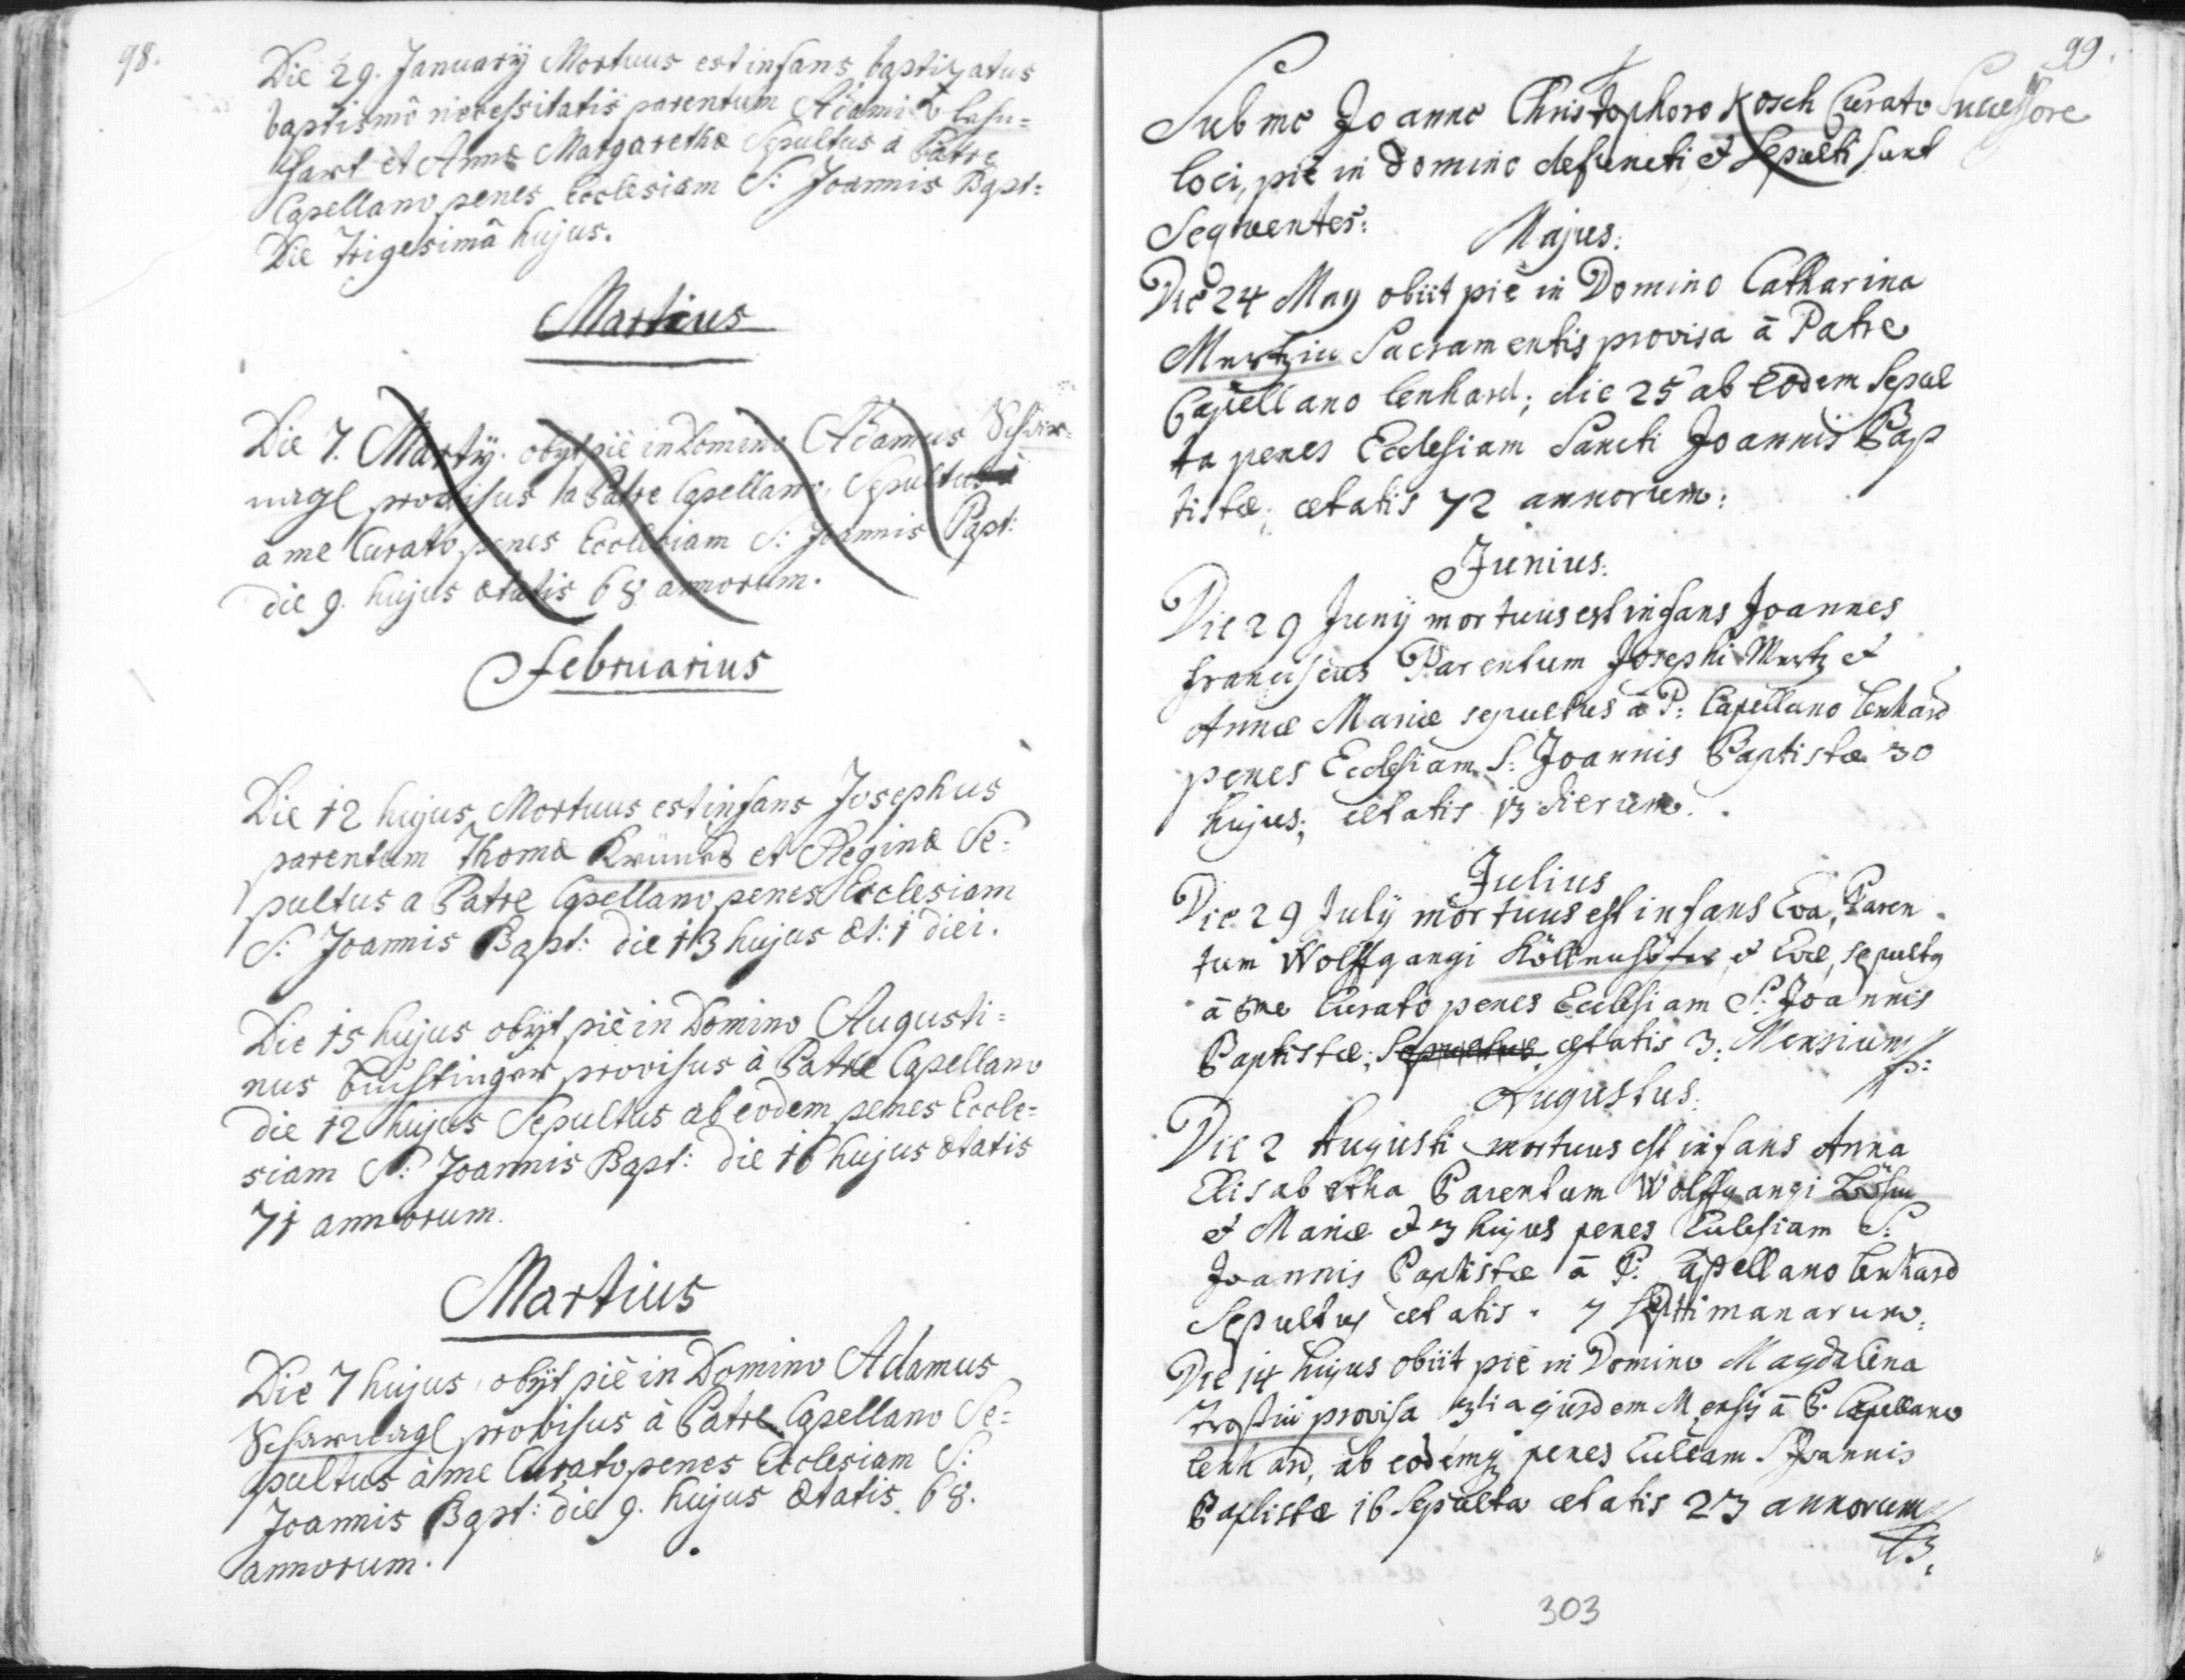 98.
Die 29. Januarÿ Mortuus est infans baptizatus
baptismô necessitatis parentum Adami
et Annæ Margarethæ Sepultus à Patre
Capellano penes Ecclesiam S: Joannis Bapt:
Die Trigesimâ hujus.
Martius
Die 7. Martÿ. obÿt piè in Domino Adamus Schar-
nagl provisus a Patre Capellano, Sepultus à
à me Curato penes Ecclesiam S: Joannis Bapt:
die 9. hujus ætatis 68 annorum.
Februarius
Die 12 hujus Mortuus est infans Josephus
parentum Thomæ et Reginæ Se-
pultus a Patre Capellano penes Ecclesiam
S: Joannis Bapt: die 13 hujus æt: 1 diei.
Die 15 hujus obÿt piè in Domino Augusti=
nus provisus à Patre Capellano
die 12 hujus Sepultus ab eodem penes Eccle=
siam S: Joannis Bapt: die 16 hujus ætatis
71 annorum.
Martius
Die 7 hujus obÿt piè in Domino Adamus
Scharnagl provisus à Patre Capellano Se=
pultus à me Curato penes Ecclesiam S:
Joannis Bapt: die 9. hujus ætatis 68.
annorum.
99.
Sub me Joanne Christophoro Kosch Curato Successore
loci, piè in Domino defuncti et Sepulti sunt
Sequentes:
Majus:
Die 24 May obiit piè in Domino Catharina
Mertzin Sacramentis provisa â Patre
Capellano lenhard; die 25 ab eodem Sepul
ta penes Ecclesiam Sancti Joannis Bap
tistæ; ætatis 72 annorum:
Junius:
Die 29 Junÿ mortuus est infans Joannes
franciscus Parentum Josephi Mertz et
Annæ Mariæ sepultus â P: Capellano lenhard
penes Ecclesiam S: Joannis Baptistæ 30
hujus; ætatis 13 dierum.
Julius
Die 29 Julÿ mortuus est infans Eva, Paren
tum Wolffgangi et Evæ, sepultus
â me Curato penes Ecclesiam S: Joannis
Baptistæ; Sepultus ætatis 3: Mensium
Augustus:
Die 2 Augusti mortuus est infans Anna
Elisabetha Parentum Wolffgangi
et Mariæ et 3 hujus penes Ecclesiam S:
Joannis Baptistæ â P: Capellano lenhard
Sepultus ætatis 7 septimanarum:
Die 14 hujus obiit piè in Domino Magdalena
provisa ejusdem Mensis â P. Capellano
lenhard, ab eodemq penes Eccleam S Joannis
Baptistæ 16 Sepulta ætatis 23 annorum
303